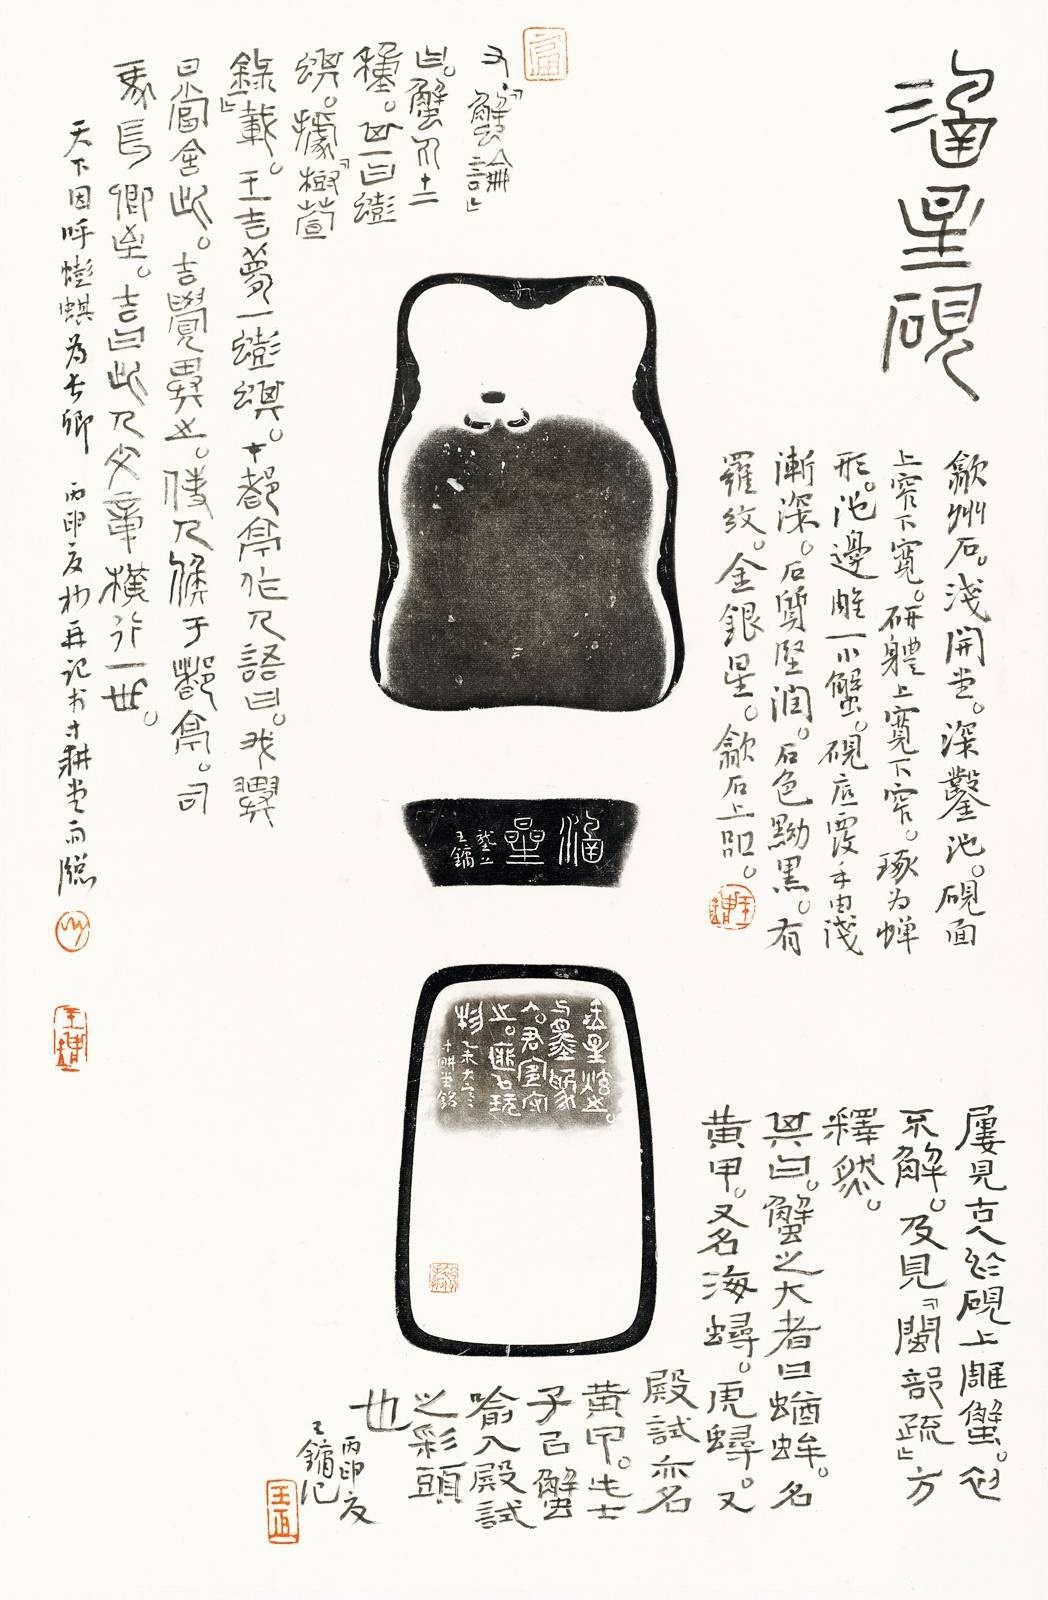 涵星硯
歙州石。淺開堂。深鑿池。硯面
上窄下寬。研體上寬下窄。琢為蟬
形。池邊雕一小蟹。硯底覆手由淺
漸深。石質堅潤。石色黝黑。有
羅紋。金銀星。歙石上品。
屢見古人於硯上雕蟹。初
不解。及見「閩部疏」方
釋然。
其曰。蟹之大者曰蝤蛑。名
黃甲。又名海蟳。虎蟳。又
殿試亦名
黃甲。
子以蟹
喻入殿試
之彩頭
也
丙申夏
王鏞記
又「蟹論」
曰。蟹凡十二
種。一曰蟛
蜞。據「樹萱
錄」載。王吉夢一蟛蜞。在都亭作人語曰。我翌
日當舍此。吉覺異之。使人候于都亭。司
馬長卿至。吉曰此人文章橫行一世。
天下因呼蟛蜞為長卿 丙申夏初再記於寸耕堂南牕
涵星
王鏞